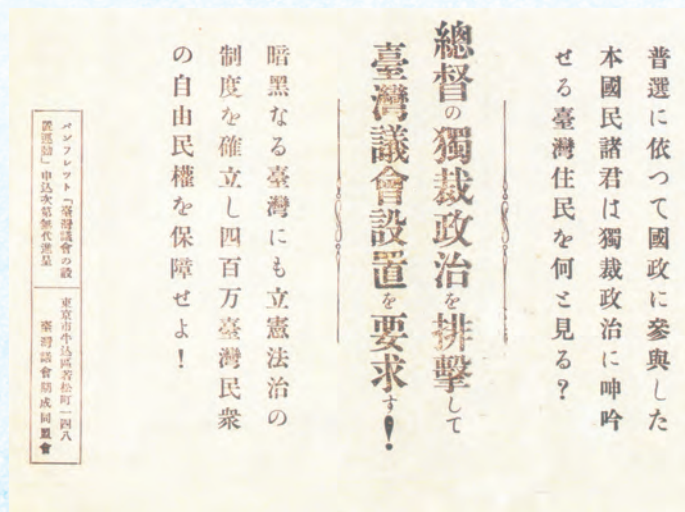 普選に依つて國政に參與した
本國民諸君は獨裁政治に呻吟
せる臺灣住民を何と見る?
總督の獨裁政治を排擊して
臺灣議會設置を要求す!
暗黑なる臺灣にも立憲法治の
制度を確立し四百万臺灣民衆
の自由民權を保障せよ!
パンフレット「臺灣議會の設
置運動」申込次第無代進呈
東京市牛込區若松町一四八
臺灣議會期成同盟會